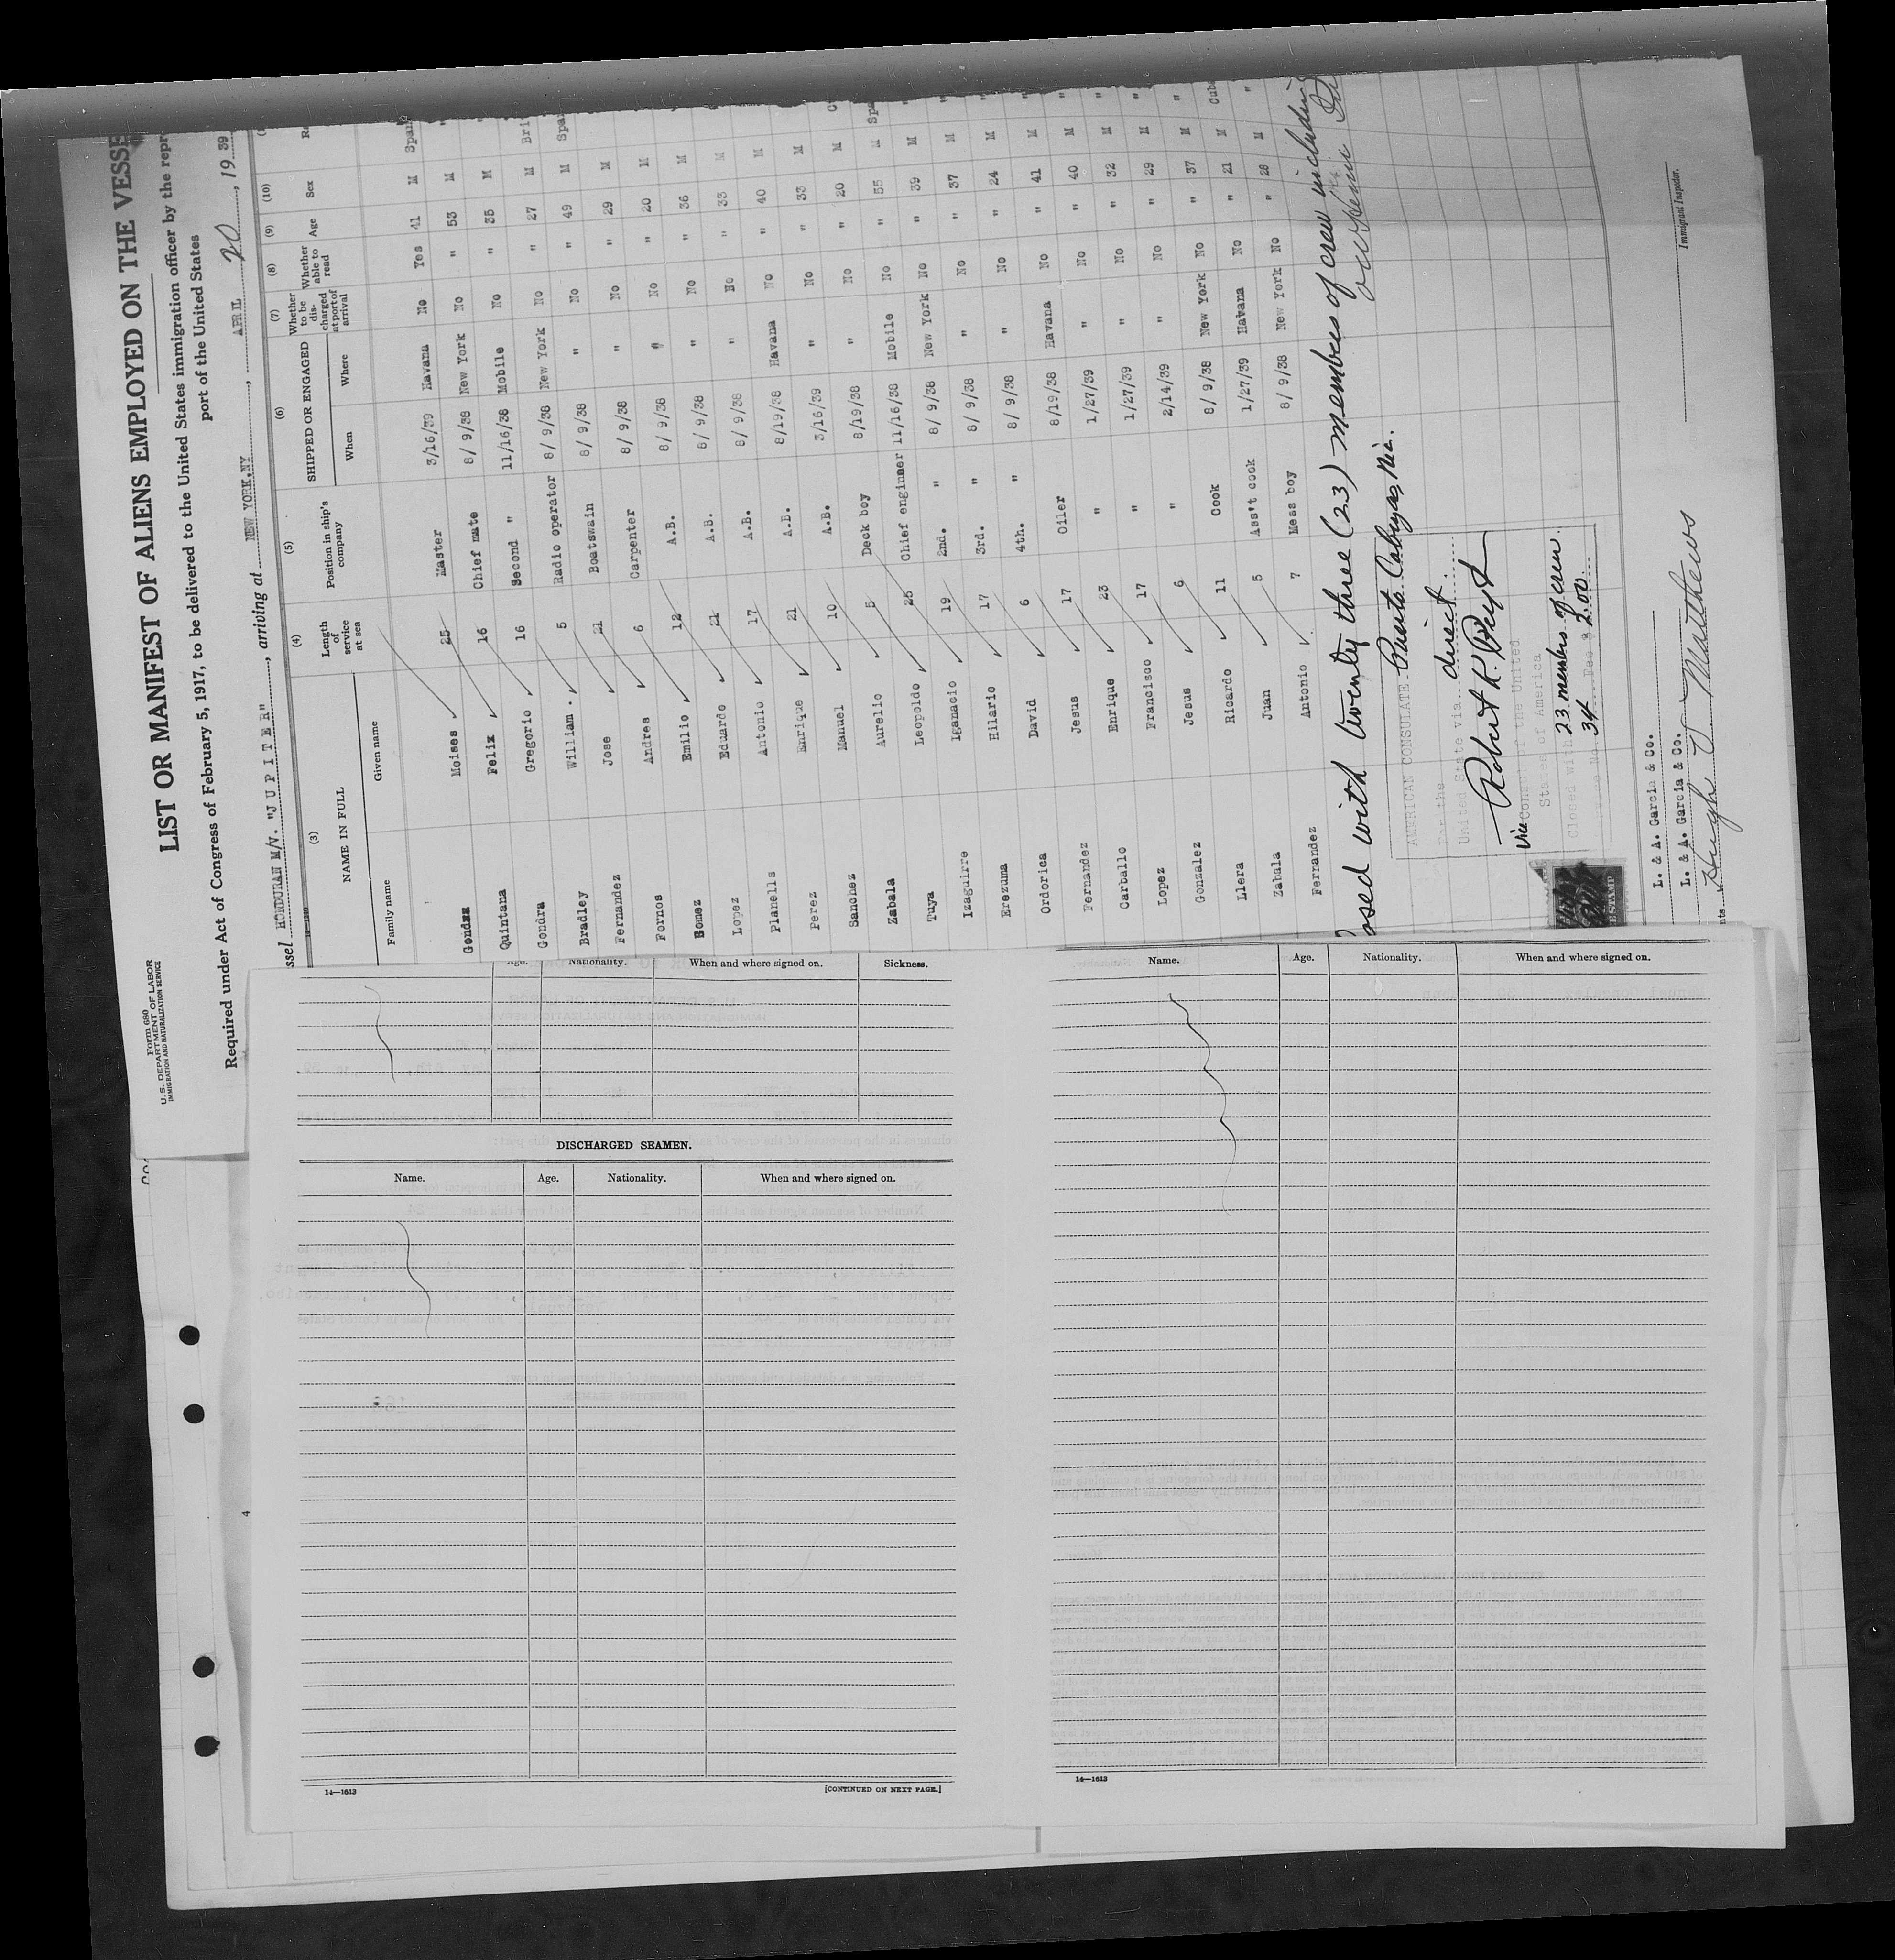 Form 680
U. S. DEPARTMENT OF LABOR
IMMIGRATION AND NATURALIZATION SERVICE
LIST OR MANIFEST OF ALIENS EMPLOYED ON THE VESSE
Required under Act of Congress of February 5, 1917, to be delivered to the United States immigration officer by the repr
port of the United States
ssel HONDURAN M/V. "J U P I T E R", arriving at NEW YORK.NY, APRIL 20, 19 39
(3) (4) (5) (6) (7) (8) (9) (10)
NAME IN FULL Length of service at sea Position in ship's company SHIPPED OR ENGAGED Whether to be discharged at port of arrival Whether able to read Age Sex Ra
Family name Given name When Where
Gondra Moises 25 Master 3/16/39 Havana No Yes 41 M Span
Quintana Felix 16 Chief mate 8/ 9/38 New York No " 53 M "
Gondra Gregorio 16 Second " 11/16/38 Mobile No " 35 M "
Bradley William. 5 Radio operator 8/ 9/38 New York No " 27 M Bri
Fernandez Jose 21 Boatswain 8/ 9/38 " No " 49 M Spa
Fornos Andres 6 Carpenter 8/ 9/38 " No " 29 M
Gomez Emilio 12 A.B. 8/ 9/38 " No " 20 M
Lopez Eduardo 21 A.B. 8/ 9/38 " No " 36 M
Planells Antonio 17 A.B. 8/ 9/38 " No " 33 M
Perez Enrique 21 A.B. 8/19/38 Havana No " 40 M
Sanchez Manuel 10 A.B. 3/16/39 " No " 33 M
Zabala Aurelio 5 Deck boy 8/19/38 " No " 20 M C
Tuya Leopoldo 25 Chief enginner 11/16/38 Mobile No " 55 M Spa
Izaguirre Iganacio 19 2nd. " 8/ 9/38 New York No " 39 M "
Erezuma Hilario 17 3rd. " 8/ 9/38 " No " 37 M "
Ordorica David 6 4th. " 8/ 9/38 " No " 24 M "
Fernandez Jesus 17 Oiler 8/19/38 Havana No " 41 M "
Carballo Enrique 23 " 1/27/39 " No " 40 M "
Lopez Francisco 17 " 1/27/39 " No " 32 M "
Gonzalez Jesus 6 " 2/14/39 " No " 29 M "
Llera Ricardo 11 Cook 8/ 9/38 New York No " 37 M "
Zabala Juan 5 Ass't cook 1/27/39 Havana No " 21 M Cub
Fernandez Antonio 7 Mess boy 8/ 9/38 New York No " 28 M "
osed with twenty three (23) members of crew including
AMERICAN CONSULATE Puerto Cabezas, Nic.
For the
United State via direct
Vice Consul of the United
States of America
Closed with 23 members of crew.
Service No. 34 Fee $ 2.00
L. & A. Garcia & Co.
L. & A. Garcia & Co.
Hugh O. Matthews
nts
Immigrant Inspector.
4
Age. Nationality. When and where signed on. Sickness.
DISCHARGED SEAMEN.
Name. Age. Nationality. When and where signed on.
14—1613
[CONTINUED ON NEXT PAGE.]
Name. Age. Nationality. When and where signed on.
14—1613